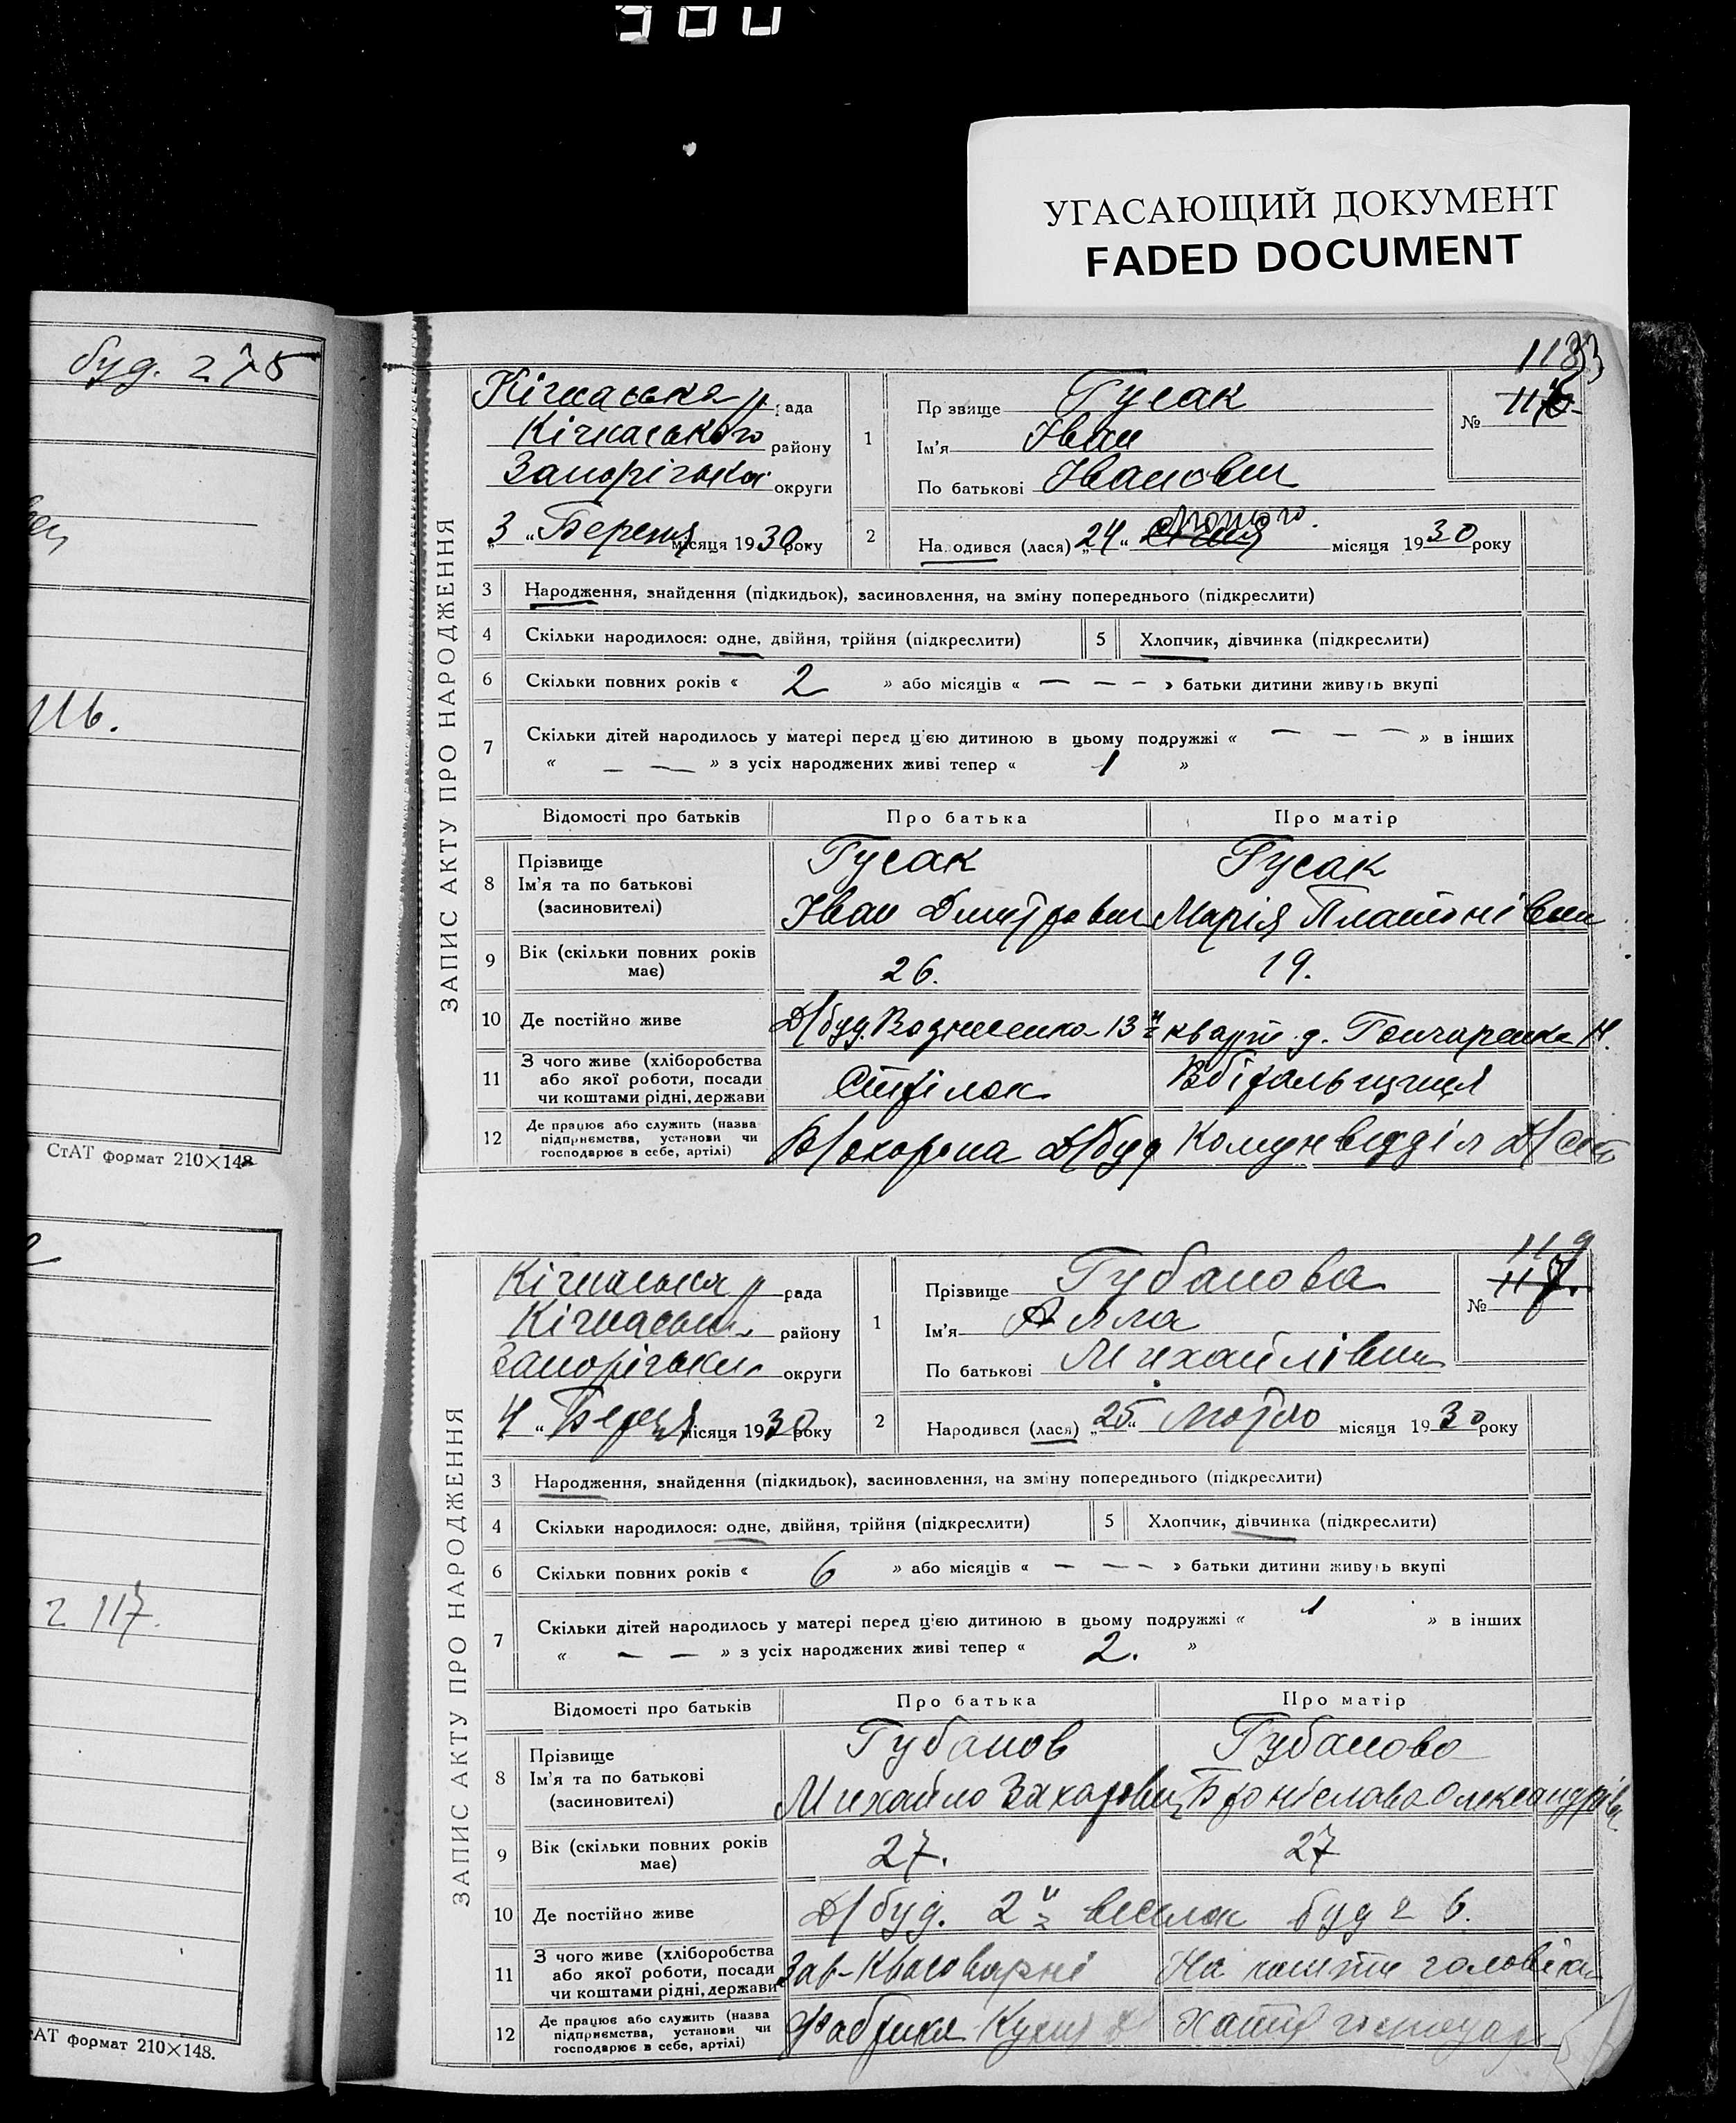 500
УГАСАЮЩИЙ ДОКУМЕНТ
FADED DOCUMENT
буд. 275
СтАТ формат 210×148
117.
АТ формат 210×148.
ЗАПИС АКТУ ПРО НАРОДЖЕННЯ
118
Кічкаська р. рада
Кічкаського району
Запорізька округи
„3 “ Березня місяця 1930 року
1
Прізвище Гусак
Ім'я Іван
По батькові Іванович
№
2
Народився (лася) „24 “ Лютого місяця 1930 року
3 Народження, знайдення (підкидьок), засиновлення, на зміну попереднього (підкреслити)
4 Скільки народилося: одне, двійня, трійня (підкреслити) 5 Хлопчик, дівчинка (підкреслити)
6 Скільки повних років « 2 » або місяців « — — — » батьки дитини живуть вкупі
7 Скільки дітей народилось у матері перед цією дитиною в цьому подружжі « — — — » в інших
« — — » з усіх народжених живі тепер « 1 »
Відомості про батьків Про батька Про матір
8 Прізвище
Ім'я та по батькові
(засиновителі)
Гусак Гусак
Іван Дмитрович Марія Платонівна
9 Вік (скільки повних років має) 26. 19.
10 Де постійно живе Д/буд. Вознесенка 13 кварт. д. Гончаренка Н.
11 З чого живе (хліборобства
або якої роботи, посади
чи коштами рідні, держави
Стрілок Вбіральниця
12 Де працює або служить (назва
підприємства, установи чи
господарює в себе, артілі)
В/охорона Д/буд Комунвідділ Д/
ЗАПИС АКТУ ПРО НАРОДЖЕННЯ
119
117.
Кічкаська р рада
Кічкаськ. району
Запорізьки. округи
„4 “ Березня місяця 1930 року
1
Прізвище Губанова
Ім'я Алла
По батькові Михайлівна
№
2
Народився (лася) „25“ Лютого місяця 1930 року
3 Народження, знайдення (підкидьок), засиновлення, на зміну попереднього (підкреслити)
4 Скільки народилося: одне, двійня, трійня (підкреслити) 5 Хлопчик, дівчинка (підкреслити)
6 Скільки повних років « 6 » або місяців « — — — » батьки дитини живуть вкупі
7 Скільки дітей народилось у матері перед цією дитиною в цьому подружжі « 1 » в інших
« — — » з усіх народжених живі тепер « 2. »
Відомості про батьків Про батька Про матір
8 Прізвище
Ім'я та по батькові
(засиновителі)
Губанов Губанова
Михайло Захарович Броніслава Олександрівна
9 Вік (скільки повних років має) 27. 27
10 Де постійно живе Д/буд. 2 веселок буд 6.
11 З чого живе (хліборобства
або якої роботи, посади
чи коштами рідні, держави
Зав-Квасоварні На кошти чоловіка
12 Де працює або служить (назва
підприємства, установи чи
господарює в себе, артілі)
Фабрика Кухня Хатня господар